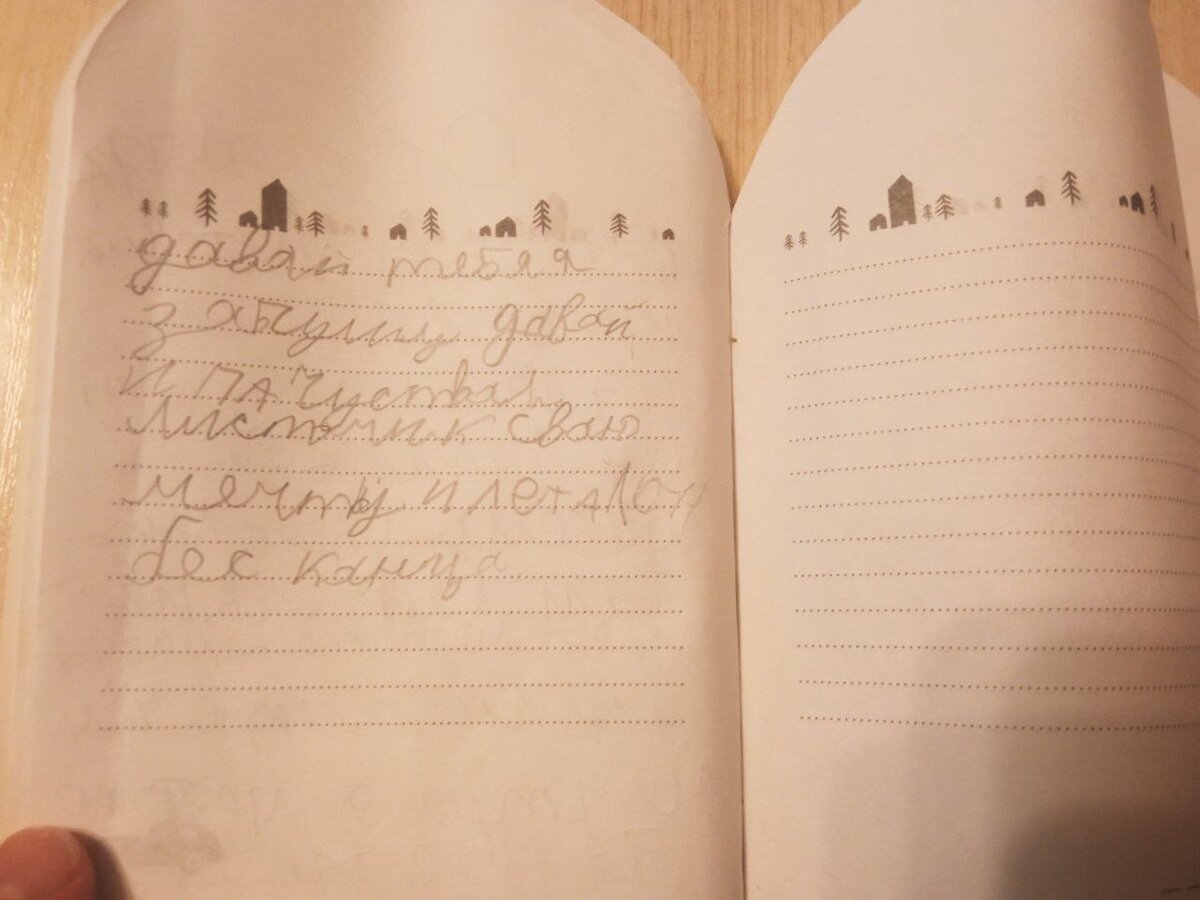 давай тебя
з апущу давай
И ПА Чуствай
листочик сваю
мечту и лета
бес канца